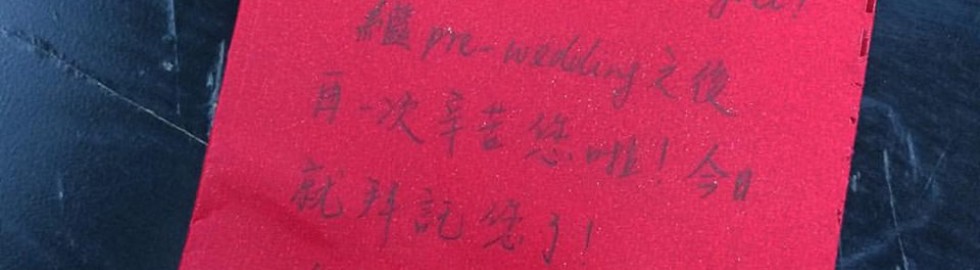 繼 pre-wedding 之後
再一次辛苦您啦！今日
就拜託您了！